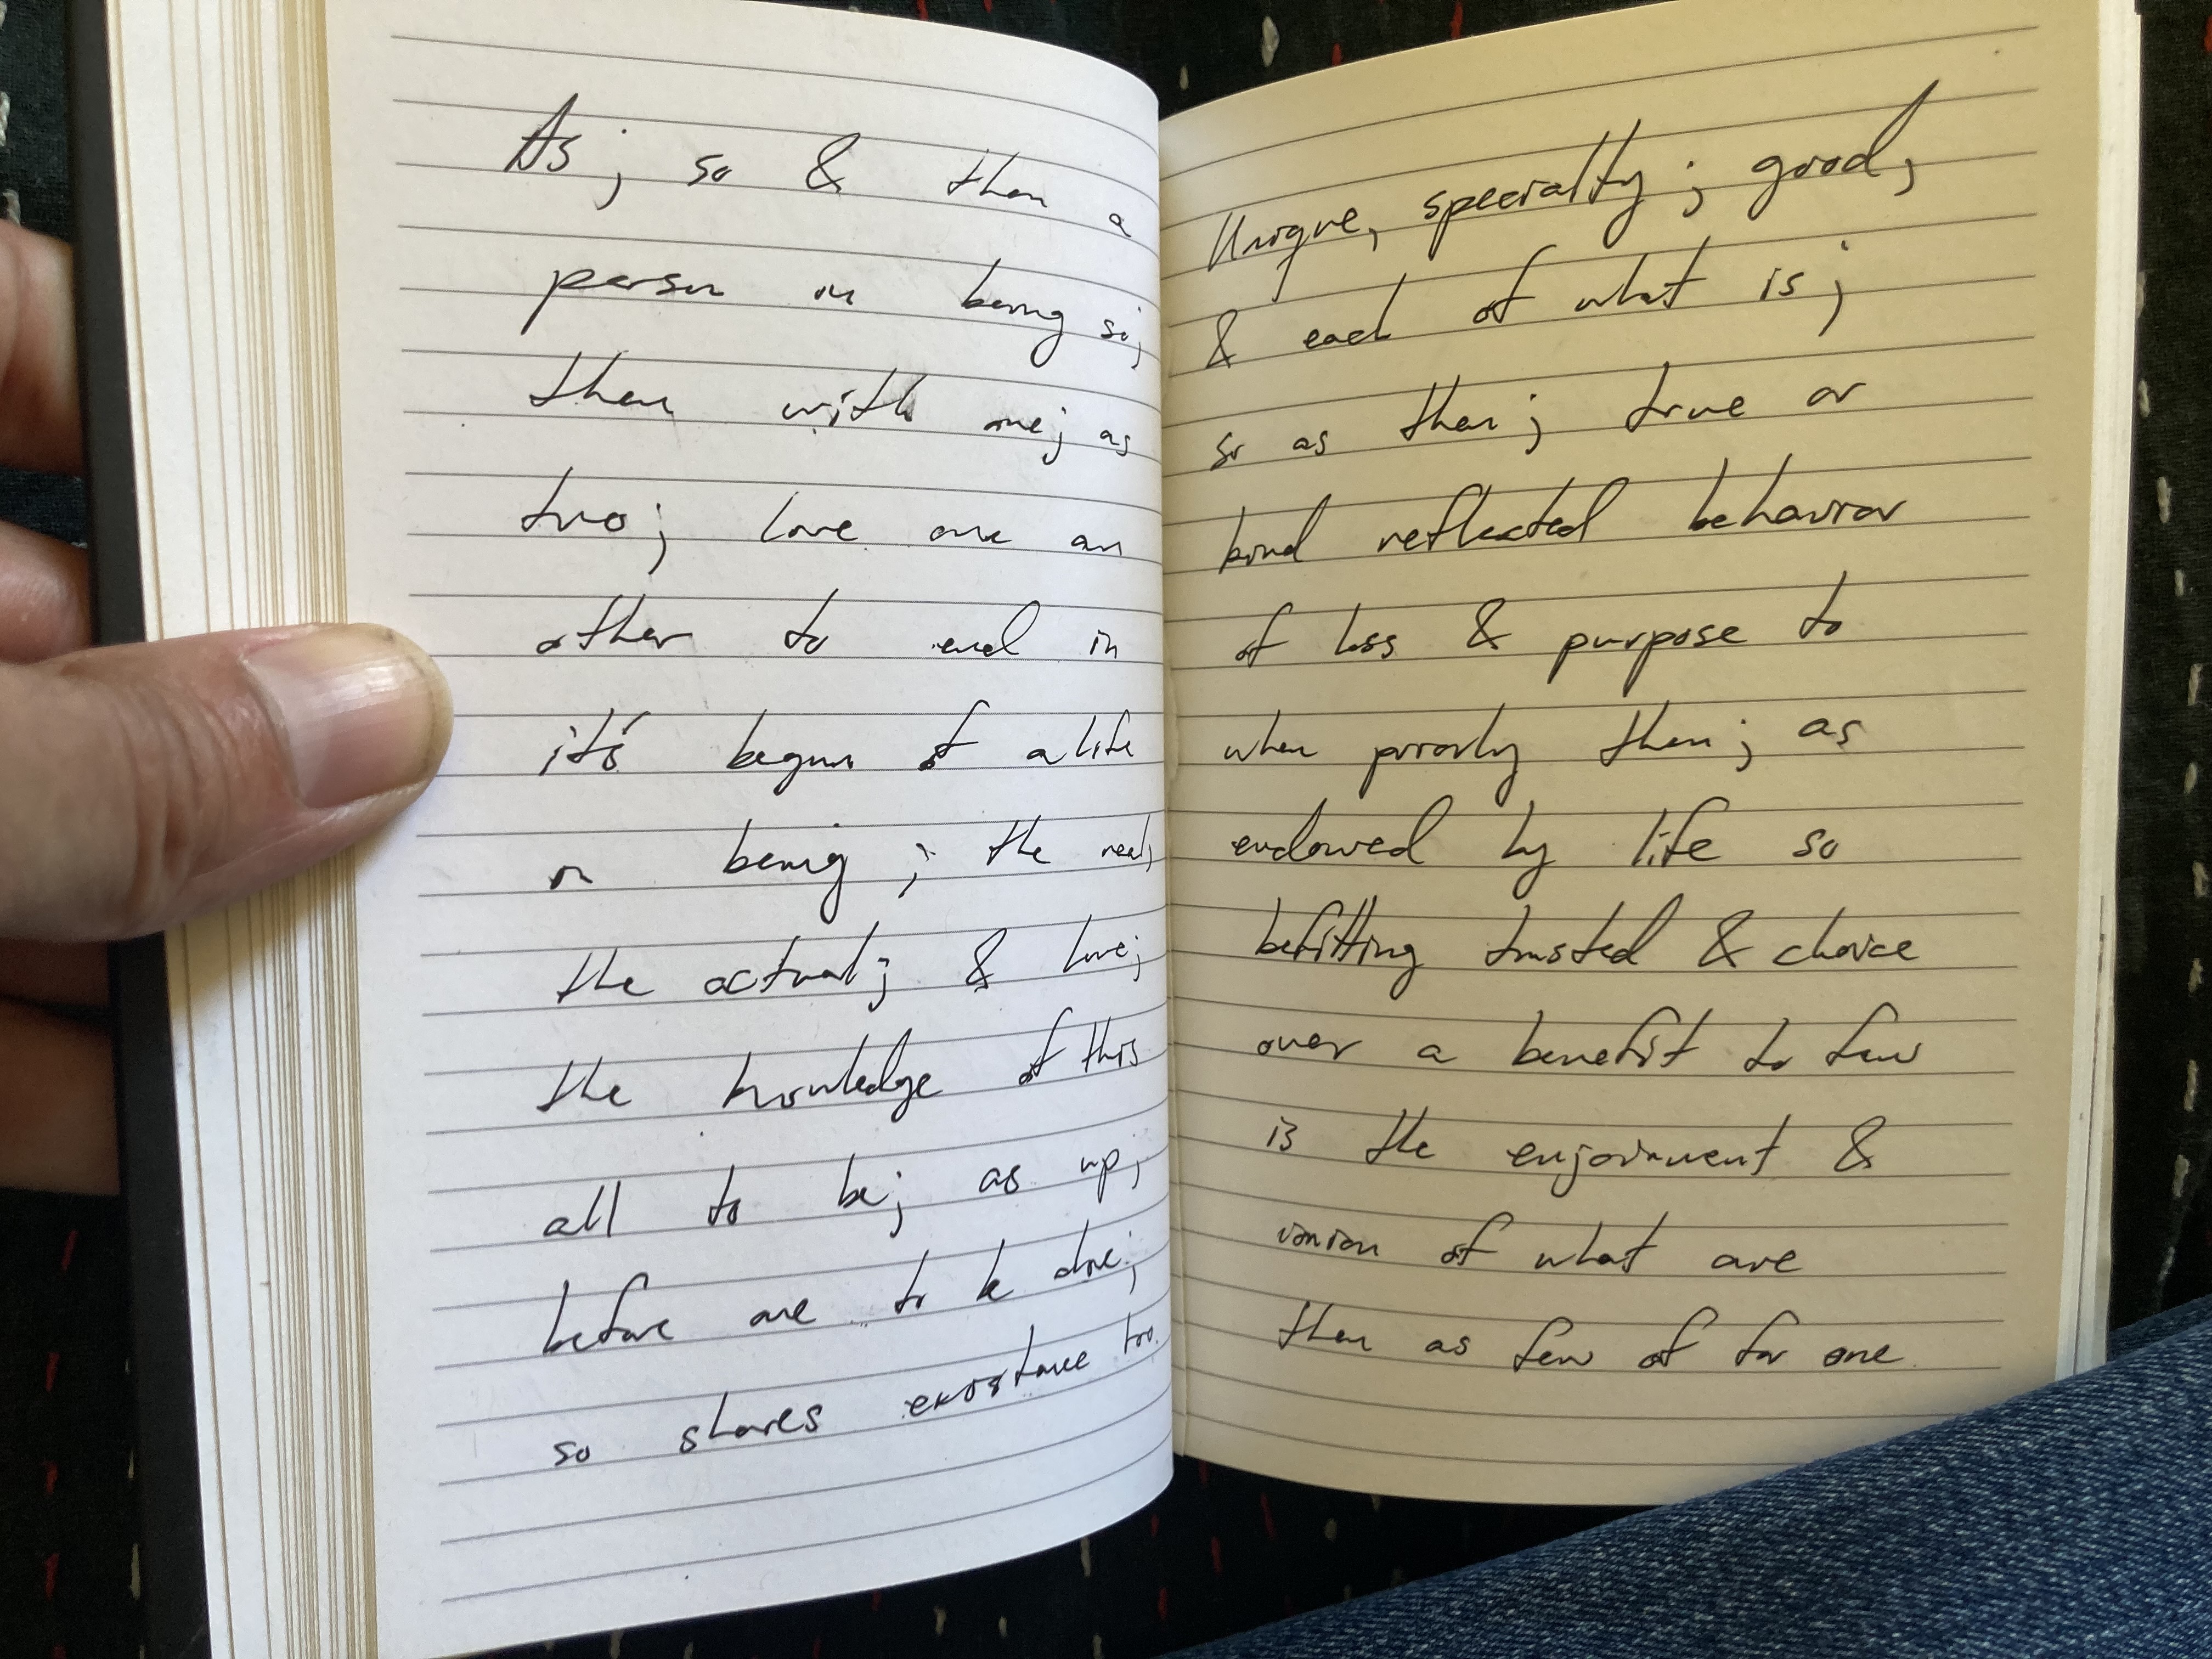 As; so & then a
person in being so;
then with one; as
two; love one an
other to end in
it's begun of a life
in being; the real;
the actual; & love;
the knowledge of this
all to be; as up;
before are to be done;
so shares existance too.
Unique, specialty; good;
& each of what is;
so as then; true or
kind reflected behavior
of loss & purpose to
when poorly then; as
endowed by life so
befitting trusted & choice
over a benefit to few
is the enjoinment &
union of what are
then as few of for one